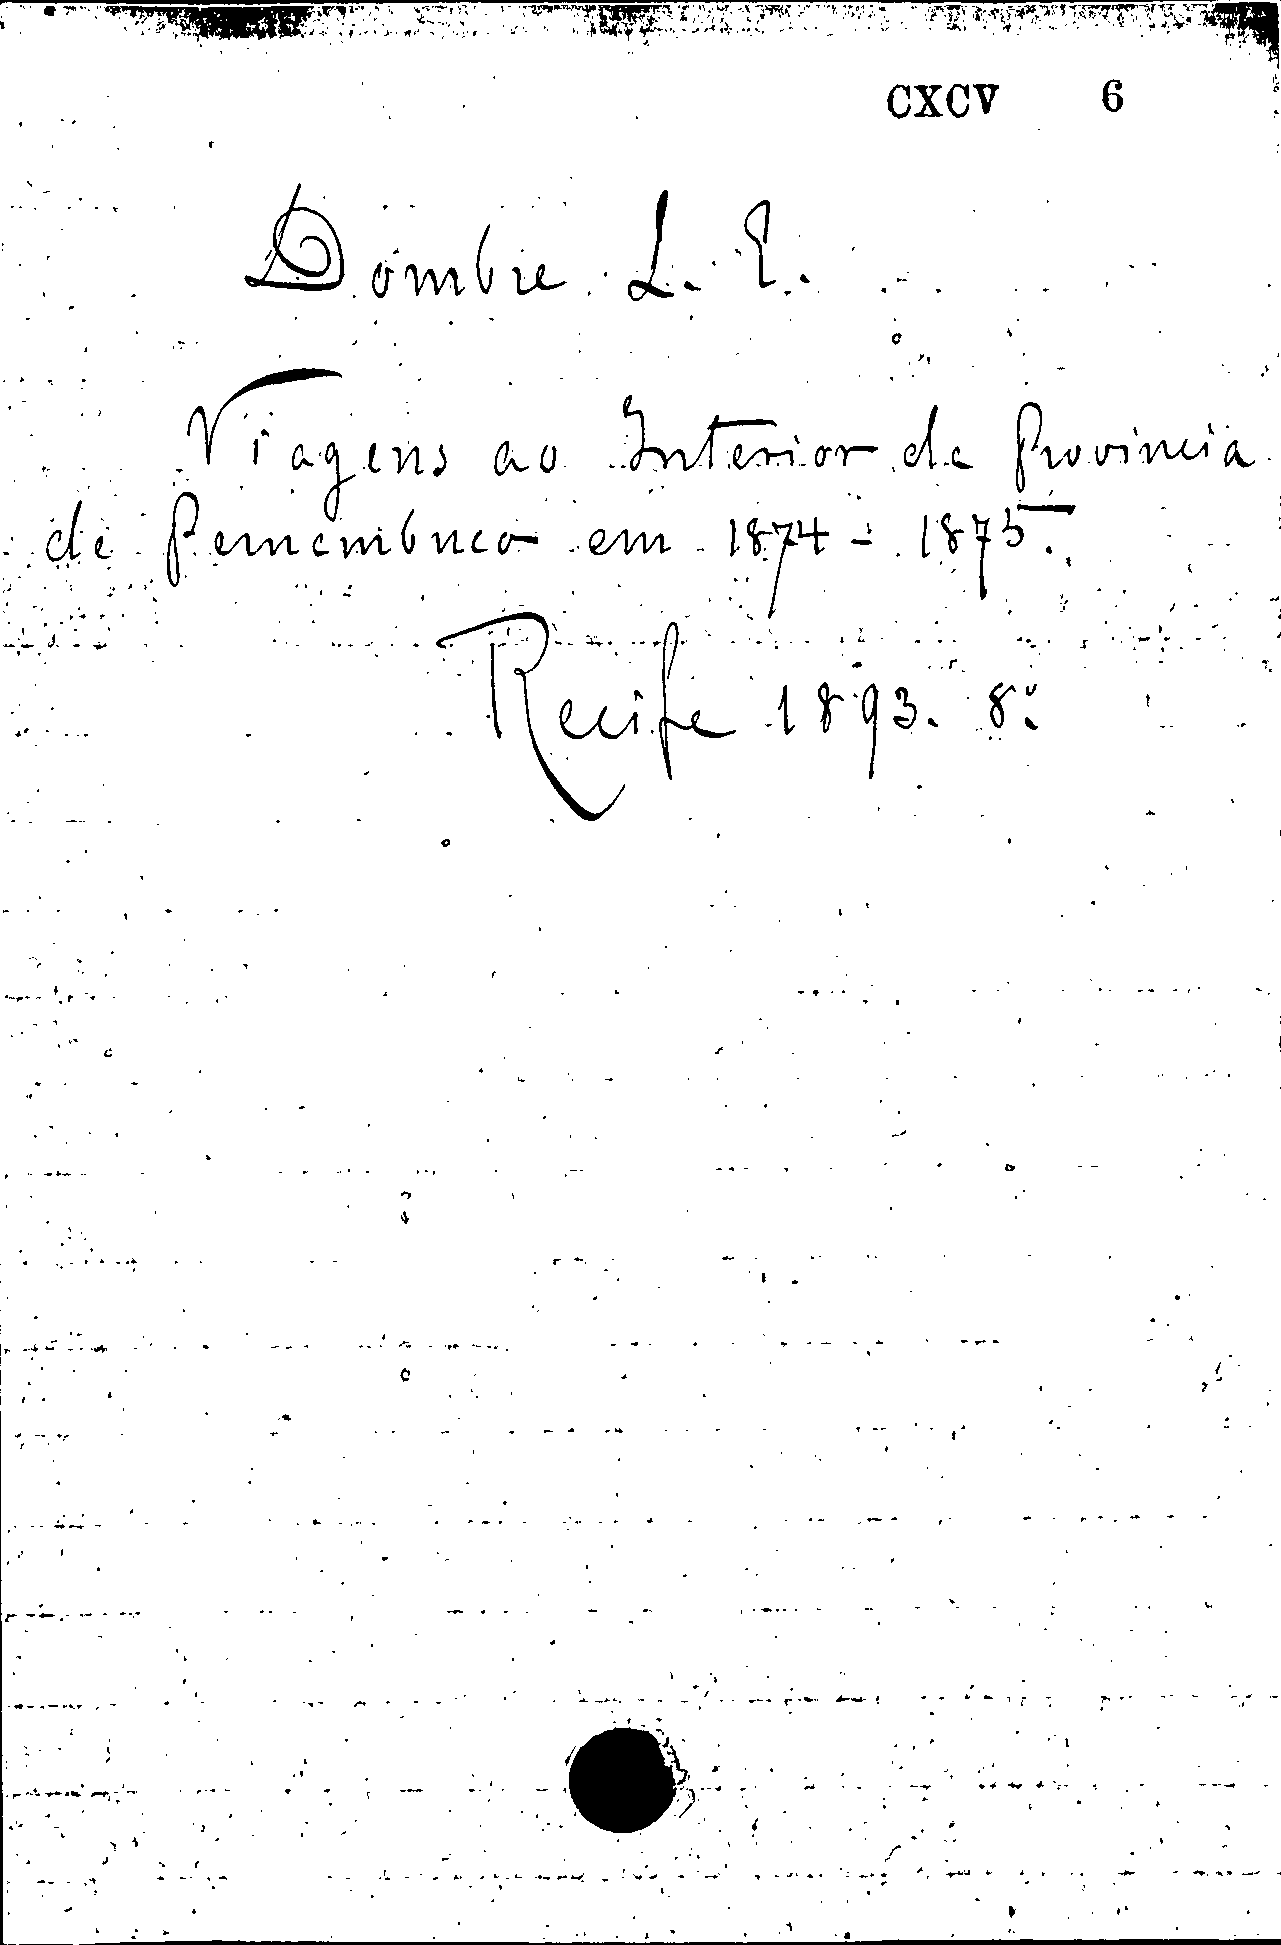 CXCV 6
Dombre L. E.
Viagens ao Interior da Provincia
de Pernambuco em 1874 - 1875.
Recife 1893. 8º.